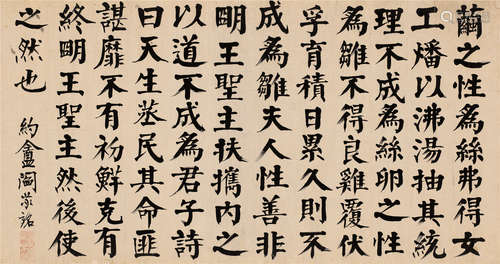 繭之性為絲弗得女
工燔以沸湯抽其統
理不成為絲卵之性
為雛不得良雞覆伏
孚育積日累久則不
成為雛夫人性善非
明王聖主扶攜內之
以道不成為君子詩
曰天生烝民其命匪
諶靡不有初鮮克有
終明王聖主然後使
之然也
約盦閻